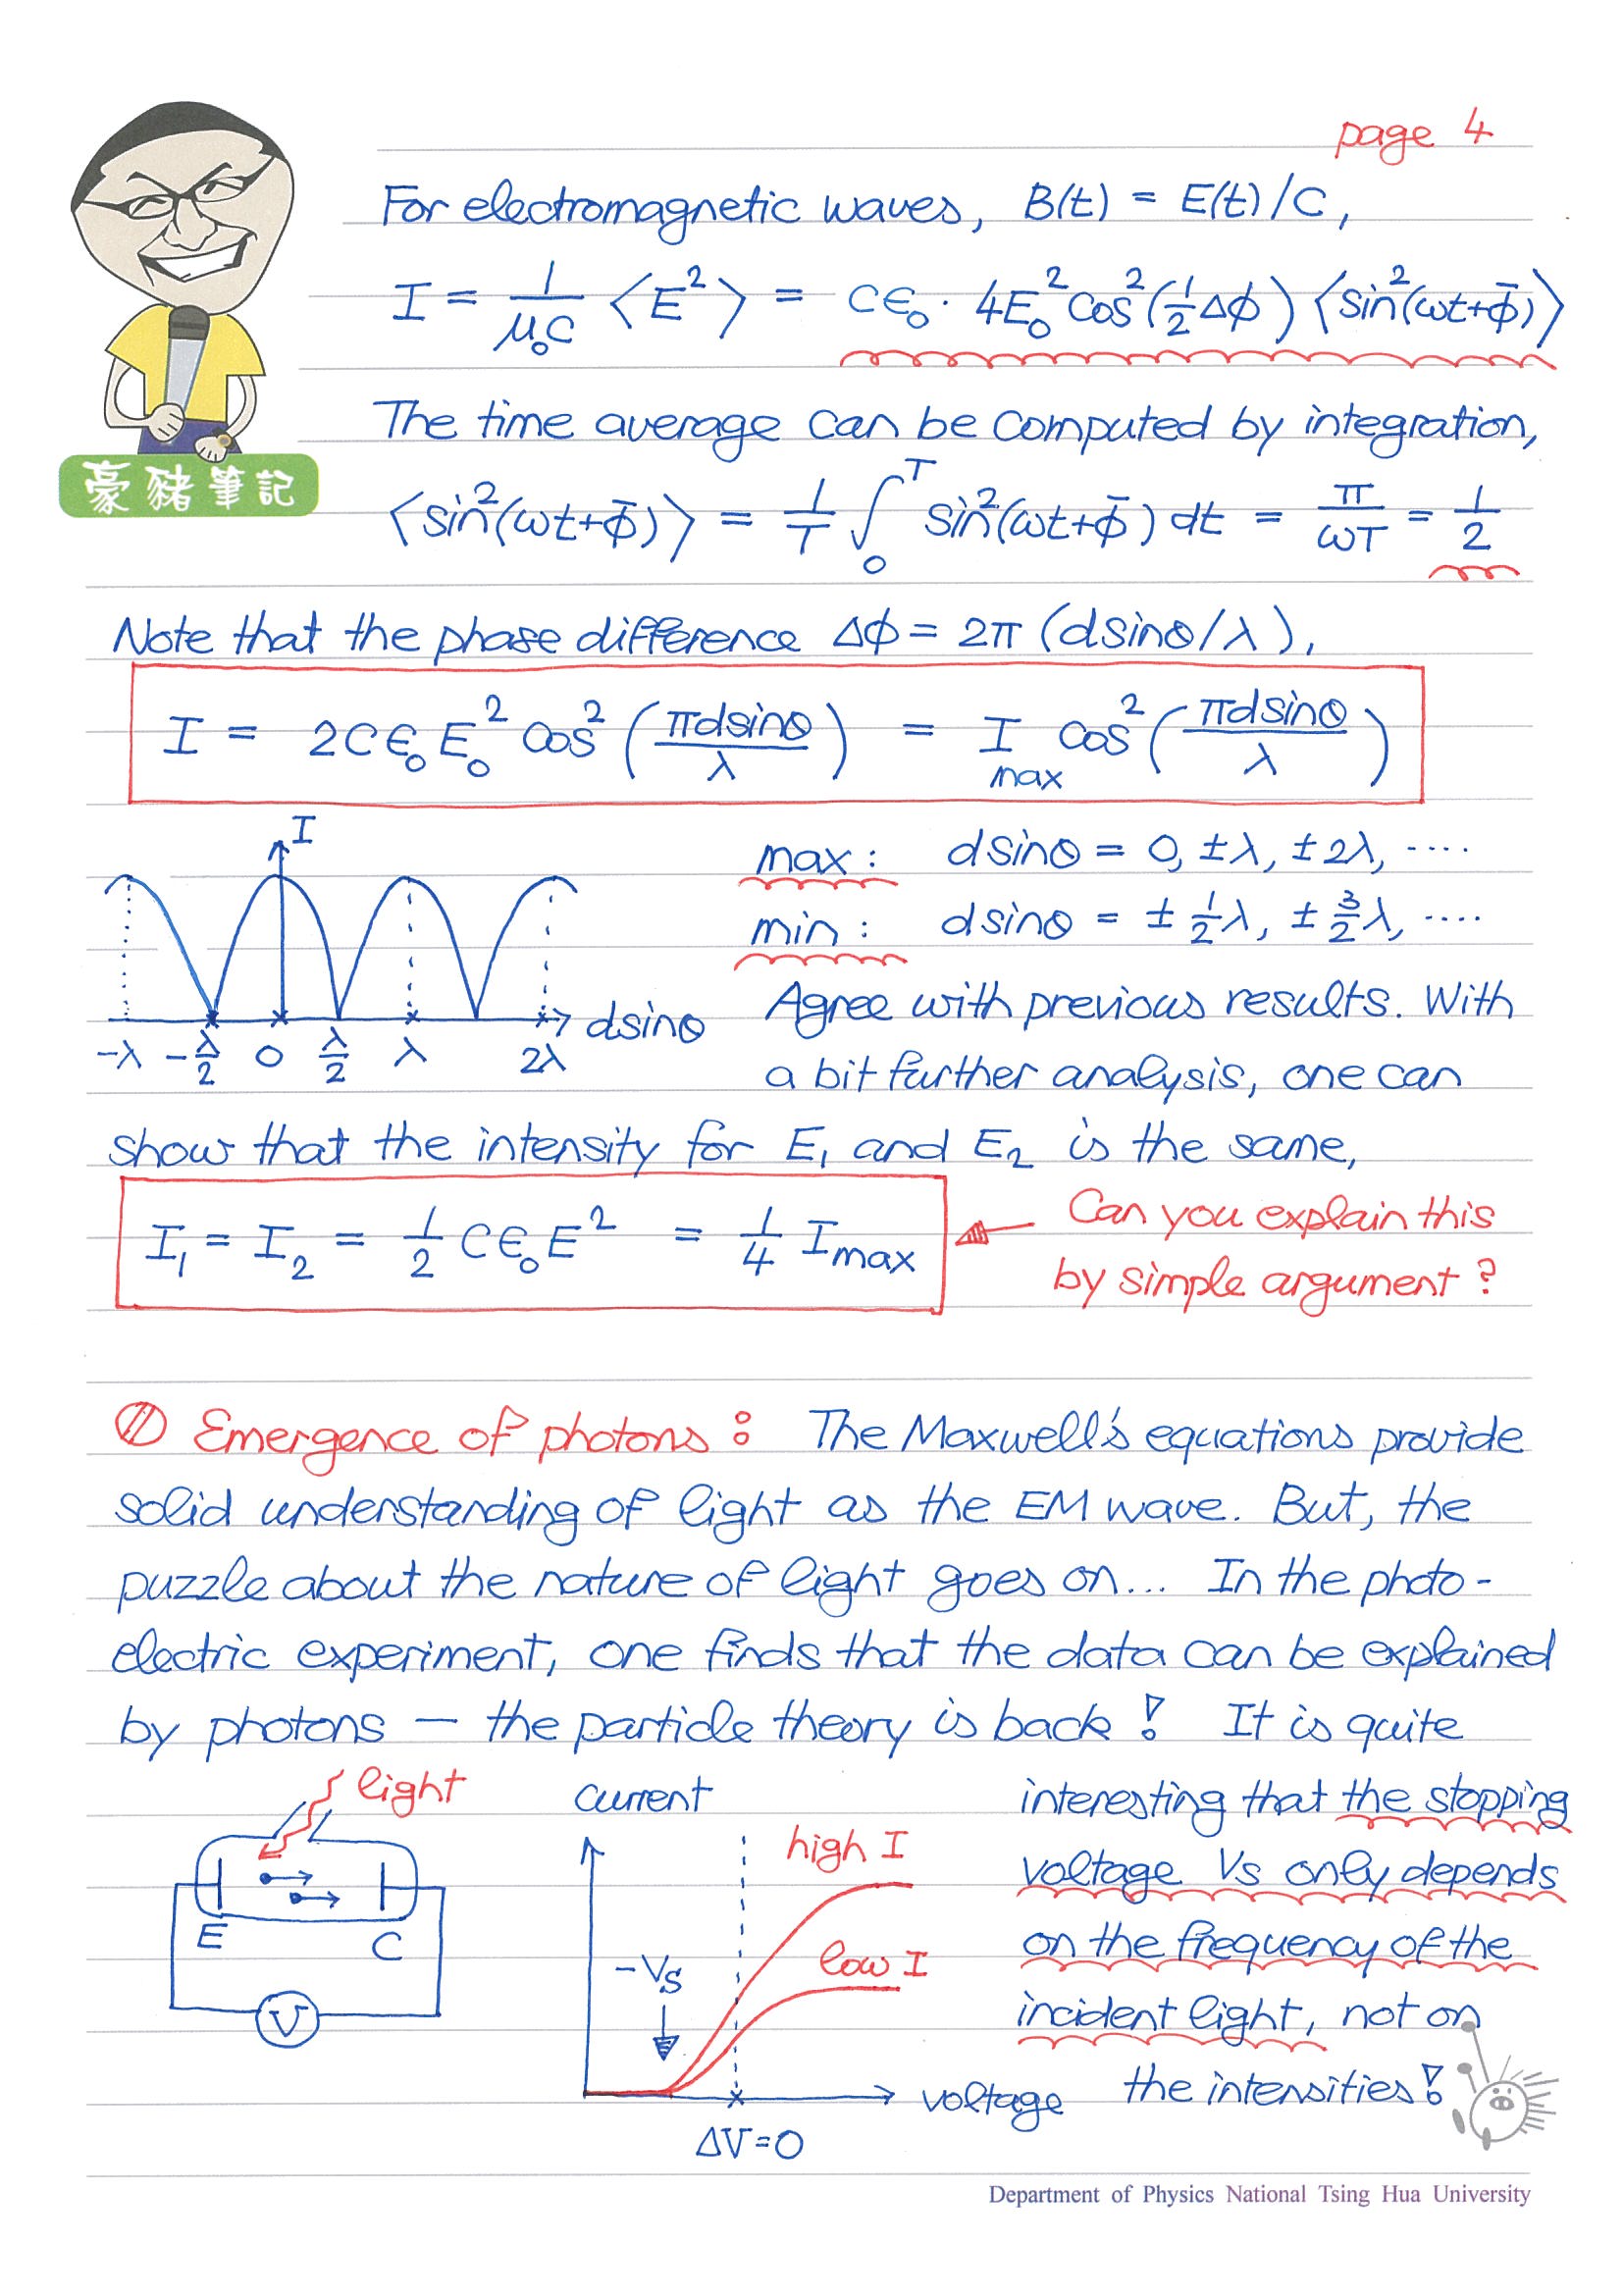 page 4
For electromagnetic waves, B(t) = E(t)/C,
I = 1/μ₀c ⟨E²⟩ = Cε₀ · 4E₀² cos²(½Δϕ) ⟨sin²(ωt+ϕ̄)⟩
The time average can be computed by integration,
豪豬筆記
⟨sin²(ωt+ϕ̄)⟩ = 1/T ∫₀ᵀ sin²(ωt+ϕ̄) dt = π/ωT = 1/2
Note that the phase difference Δϕ = 2π (dsinθ/λ),
I = 2Cε₀E₀² cos² (πdsinθ/λ) = I max cos² (πdsinθ/λ)
I
max : dsinθ = 0, ±λ, ±2λ, ....
min : dsinθ = ± ½λ, ± 3/2 λ, ....
dsinθ
-λ -λ/2 0 λ/2 λ 2λ
Agree with previous results. With
a bit further analysis, one can
show that the intensity for E₁ and E₂ is the same,
I₁ = I₂ = ½ Cε₀E² = ¼ Imax
Can you explain this
by simple argument ?
Emergence of photons : The Maxwell's equations provide
solid understanding of light as the EM wave. But, the
puzzle about the nature of light goes on... In the photo-
electric experiment, one finds that the data can be explained
by photons — the particle theory is back ! It is quite
light
current
interesting that the stopping
high I
voltage Vs only depends
E C
on the frequency of the
-Vs
low I
V
incident light, not on
voltage
the intensities !
ΔV=0
Department of Physics National Tsing Hua University